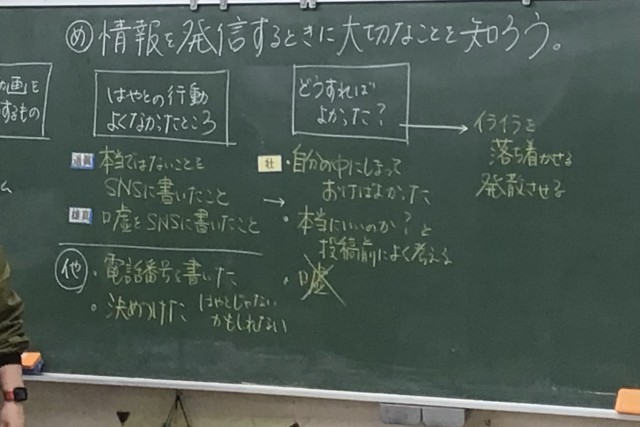 め 情報を発信するときに大切なことを知ろう。
画を
するもの
はやとの行動
よくなかったところ
本当ではないことを
SNSに書いたこと
雄真 嘘をSNSに書いたこと
他 ・電話番号を書いた
・決めつけた はやとじゃない
かもしれない
どうすれば
よかった?
壮 ・自分の中にしまって
おけばよかった
・本当にいいのか?と
投稿前によく考える
・嘘
→ イライラを
落ち着かせる
発散させる